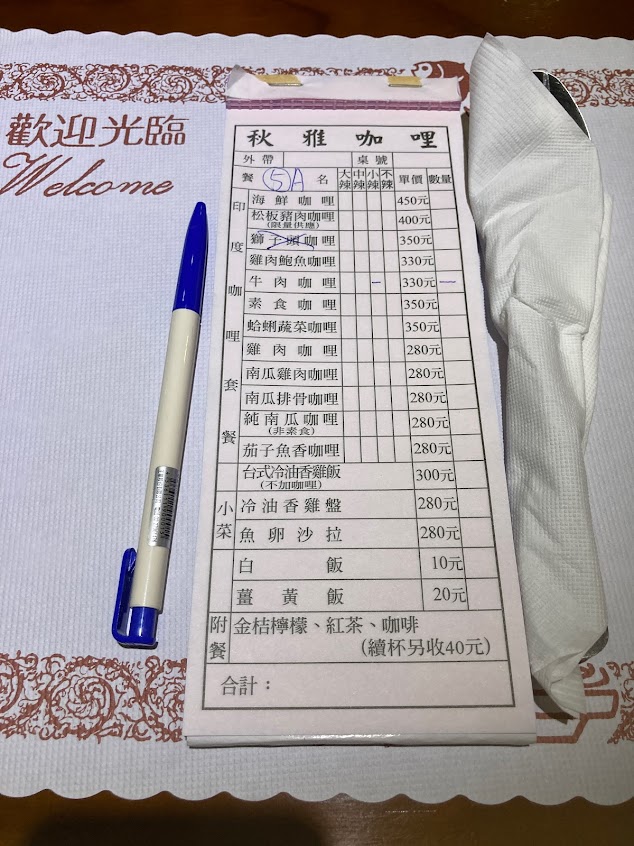 歡迎光臨
Welcome
秋雅咖哩
外帶 桌號
餐 ⑤A 名 大辣 中辣 小辣 不辣 單價 數量
印度咖哩套餐
海鮮咖哩 450元
松板豬肉咖哩 400元
(限量供應)
獅子頭咖哩 350元
雞肉鮑魚咖哩 330元
牛肉咖哩 一 330元 一
素食咖哩 350元
蛤蜊蔬菜咖哩 350元
雞肉咖哩 280元
南瓜雞肉咖哩 280元
南瓜排骨咖哩 280元
純南瓜咖哩 280元
(非素食)
茄子魚香咖哩 280元
小菜
台式冷油香雞飯 300元
(不加咖哩)
冷油香雞盤 280元
魚卵沙拉 280元
白飯 10元
薑黃飯 20元
附餐 金桔檸檬、紅茶、咖啡
(續杯另收40元)
合計：